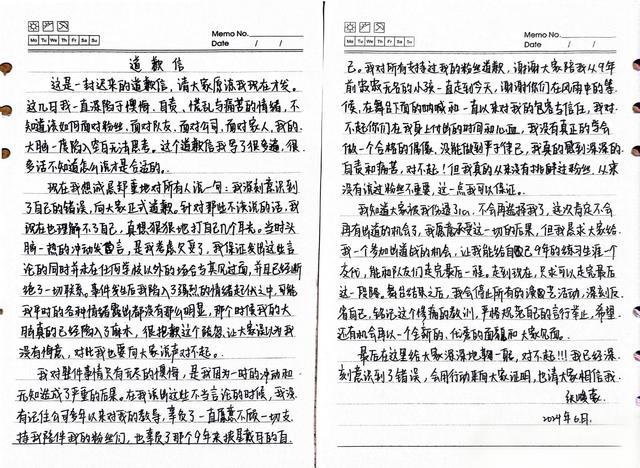 Memo No.
Mo Tu We Th Fr Sa Su
Date / /
道歉信
这是一封迟来的道歉信,请大家原谅我现在才发。
这几日我一直陷于懊悔、自责、慌乱与痛苦的情绪,不
知道该如何面对粉丝,面对队友,面对公司,面对家人,我的
大脑一度陷入空白无法思考。这个道歉信我写了很多遍,很
多话不知道怎么说才是合适的。
现在我想诚恳郑重地对所有人说一句:我深刻意识到
了自己的错误,向大家正式道歉。针对那些不该说的话,我
现在也理解不了自己,真想狠狠地打自己几个耳光。当时头
脑一热的冲动发言,是我考虑欠妥了,我保证发出这些言
论的同时并未在任何学校以外的场合与其见过面,并且已经断
绝了一切联系。事件发生后我陷入了强烈的情绪起伏之中,可能
我平时的各种情绪露出都没有那么明显,那个时候我的大
脑真的已经陷入了麻木,很抱歉这个疏忽让大家误以为我
没有悔意,对此我也要向大家说声对不起。
我对整件事情只有无尽的懊悔,是我因为一时的冲动和
无知造成了严重的后果。在我说出这些不当言论的时候,我没
有记住公司多年以来对我的教导,辜负了一直愿意不顾一切支
持我陪伴我的粉丝们,也辜负了那个9年来披星戴月的自
Memo No.
Mo Tu We Th Fr Sa Su
Date / /
己。我对所有支持过我的粉丝道歉,谢谢大家陪我从9年
前寂寂无名的小孩一直走到今天,谢谢你们在风雨中的等
候,在舞台下面的呐喊和一直以来对我的包容与信任,我对
不起你们在我身上付出的时间和心血,我没有真正的学会
做一个合格的偶像,没能做到严于律己,我真的感到深深的
自责和痛苦,对不起!但我真的从来没有排解过粉丝,从来
没有说过粉丝不重要,这一点我可以保证。
我知道大家被我伤透了心,不会再选择我了,这次肯定不会
再有出道的机会了,我愿意承受这一切的后果,但我恳求大家给
我一个参加出道战的机会,让我能给自己9年的练习生涯一个
交代,能和队友们走完最后一程。走到现在,只求可以走完最后
这一段路。舞台结束之后,我会停止所有的演艺活动,深刻反
省自己,铭记这个惨痛的教训,严格规范自己的言行举止,希望
还有机会再以一个全新的、优秀的面貌和大家见面。
最后在这里给大家深深地鞠一躬,对不起!!!我已经深
刻意识到了错误,会用行动来向大家证明,也请大家相信我。
2024年6月